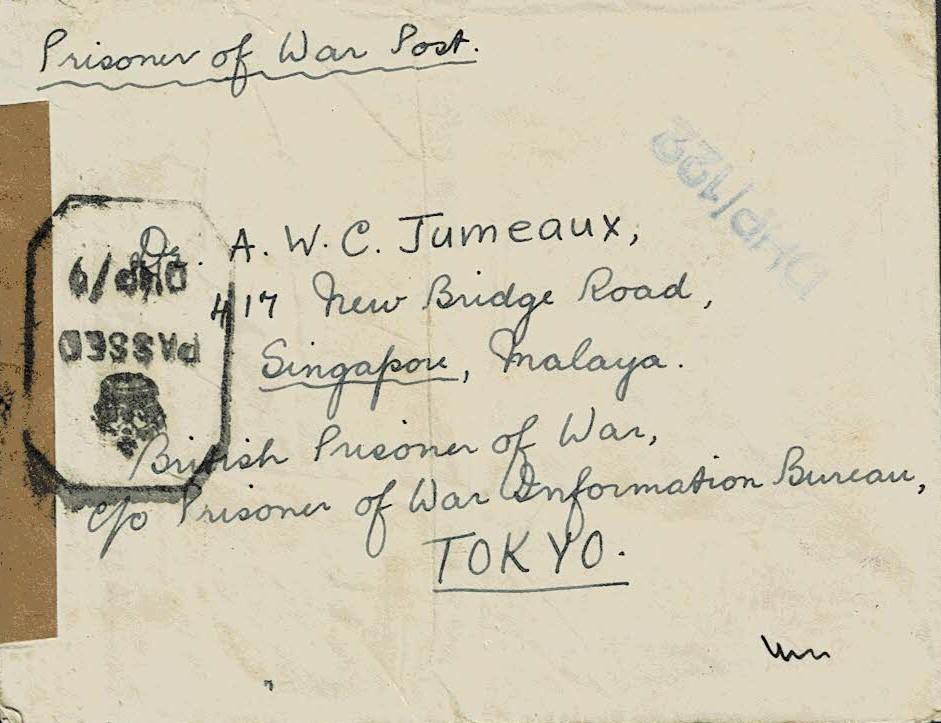 Prisoner of War Post.
DHP/122
Dr. A. W. C. Jumeaux,
417 New Bridge Road,
Singapore, Malaya.
DHP/9
PASSED
British Prisoner of War,
c/o Prisoner of War Information Bureau,
TOKYO.